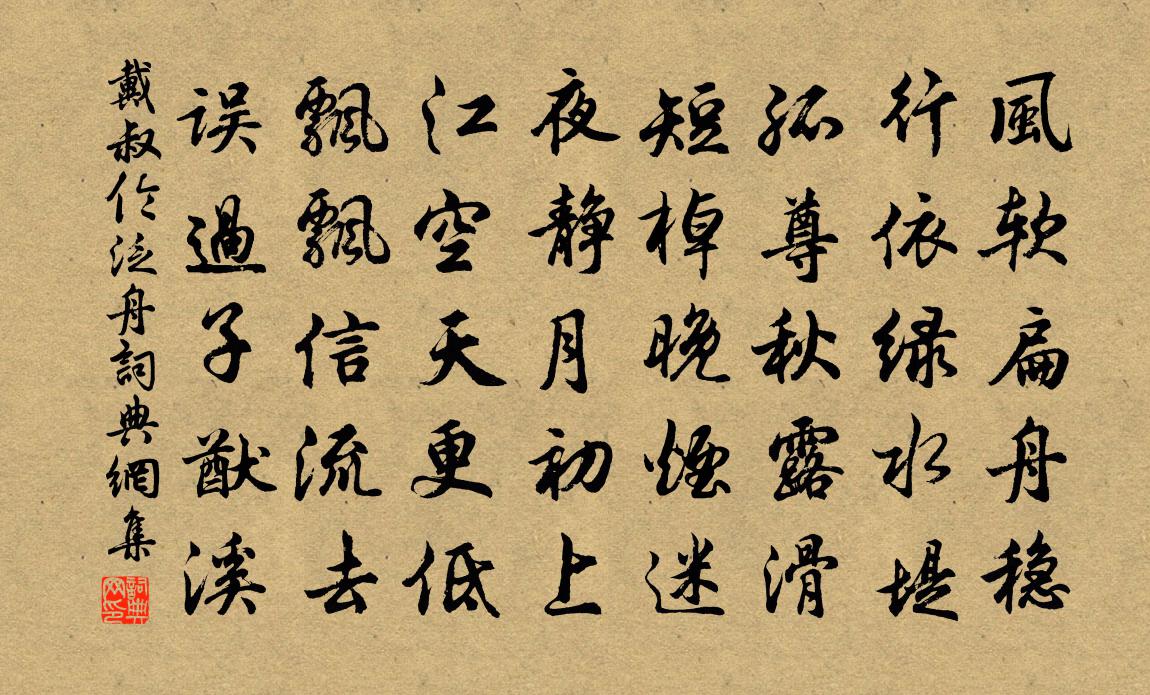 風软扁舟稳
行依绿水堤
孤尊秋露滑
短棹晚煙迷
夜静月初上
江空天更低
飄飄信流去
误過子猷溪
戴叔伦泛舟詞典網集
詞典网印